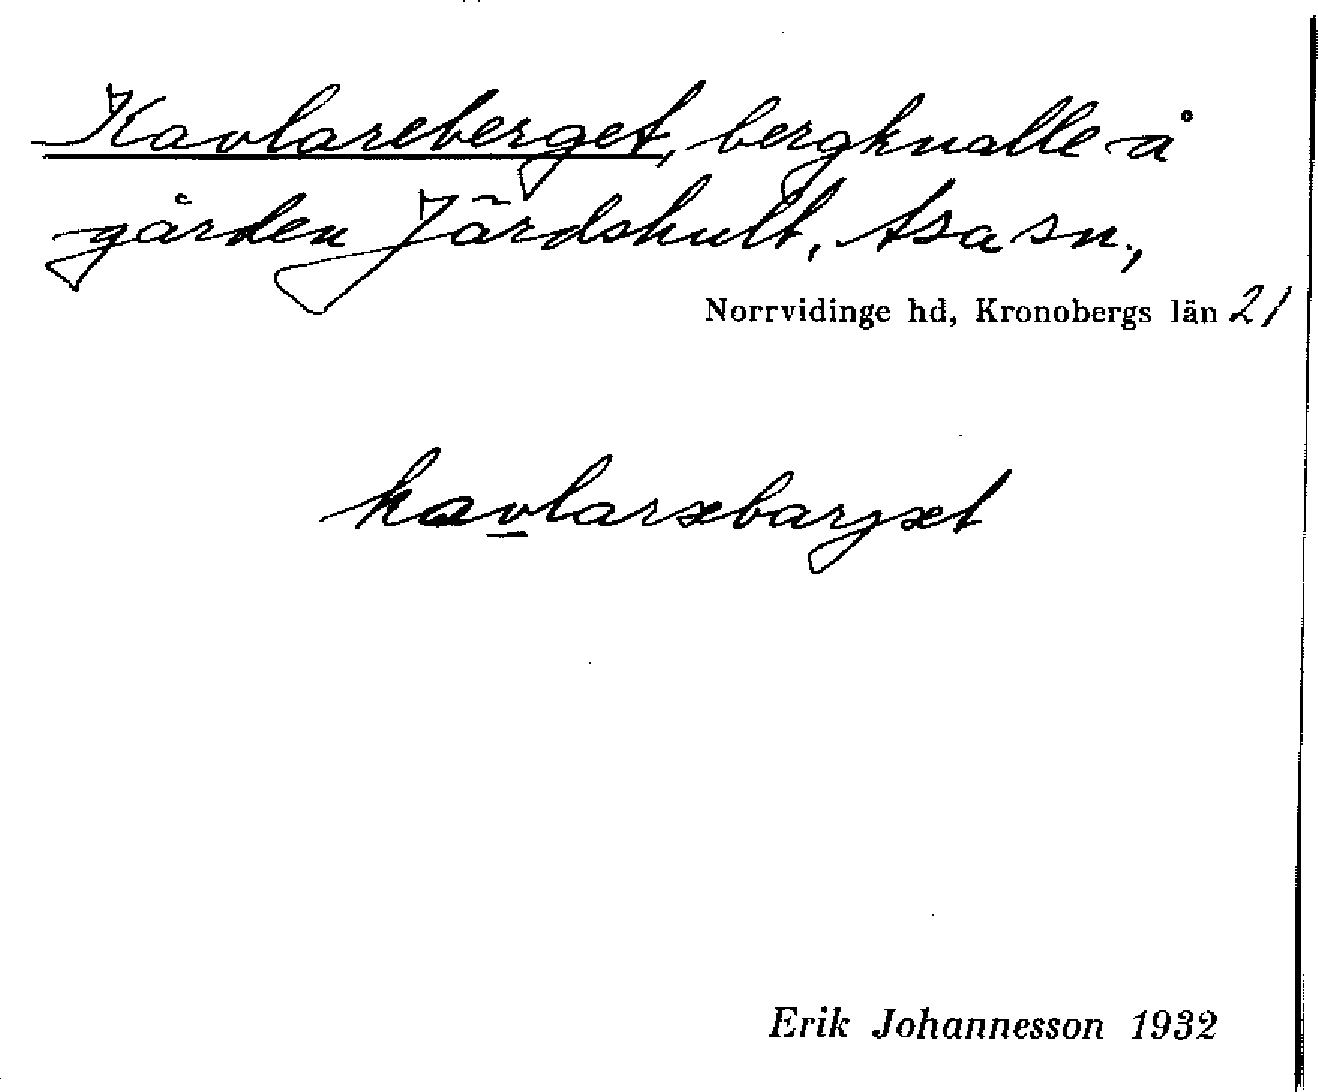 Kavlareberget, bergknalle å
gården Järdshult, Asa sn.,
Norrvidinge hd, Kronobergs län 21
kavlarəbarjət
Erik Johannesson 1932